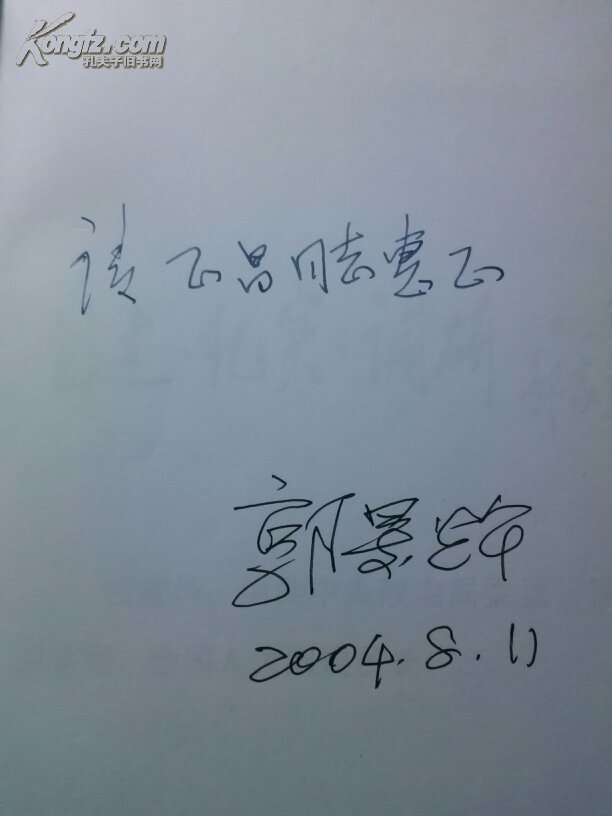 Kongfz.com
孔夫子旧书网
请正昌同志惠正
郭景
2004.8.11